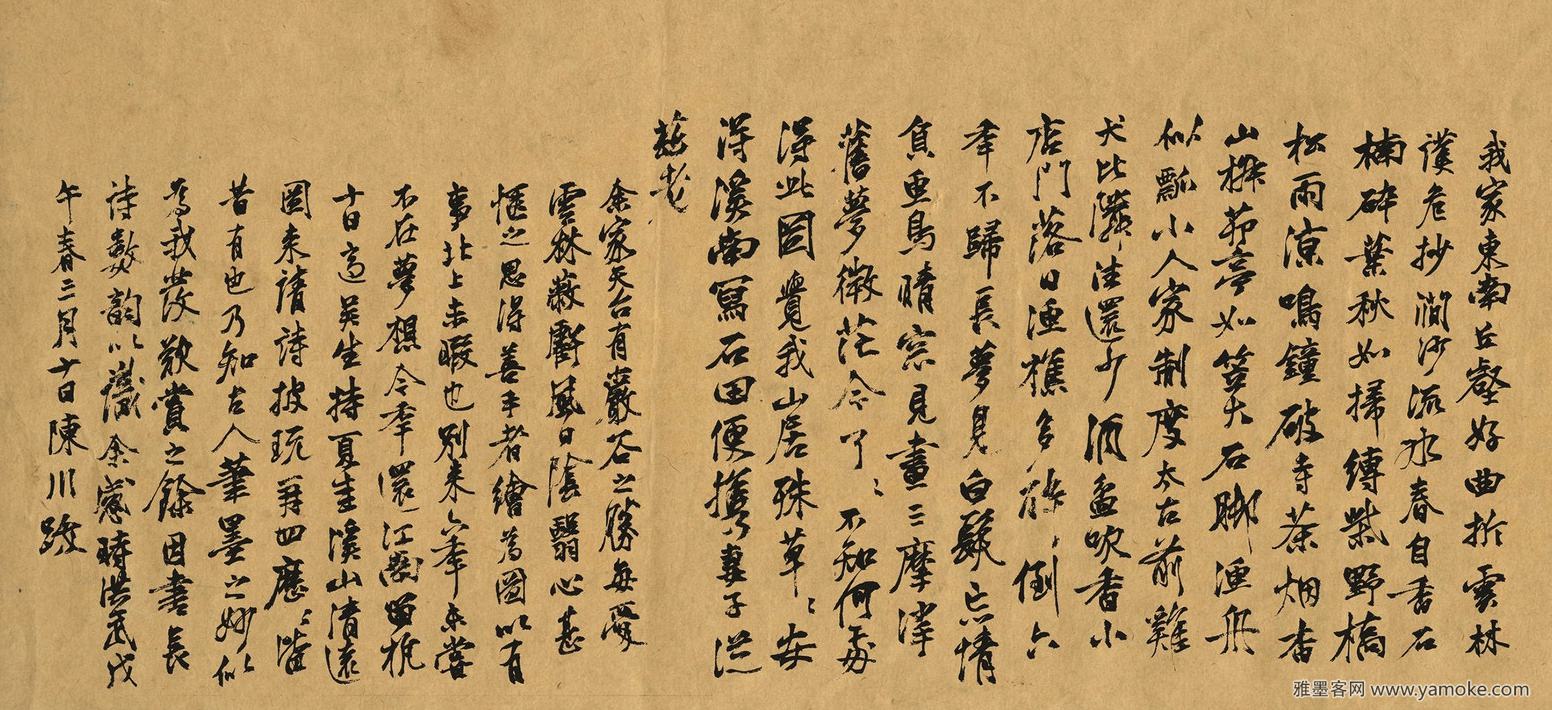 我家東南丘壑好曲折雲林
危抄澗沙流水春自香石
楠碎葉秋如掃縛柴野橋
松雨涼鳴鐘破寺茶烟杳
山椒茆亭如笠大石脚漁舟
似瓢小人家制度太古前雞
犬比隣往還少酒盃吹香小
店門落日漁樵多醉倒六
年不歸長夢見白髮忘情
負魚鳥晴窓見畫三摩挲
舊夢微茫今了々不知何處
得此圖覺我山居殊草々安
得溪南寫石田便攜妻子從
老
余家天台有巖谷之勝每愛
雲林蔽風日陰翳心甚
愜之思得善手者繪為圖以有
事北上未暇也別來六年未嘗
不在夢想今年還江南留杭
十日適吳生持夏圭溪山清遠
圖來請詩披玩再四歷々皆
昔有也乃知古人筆墨之妙似
為我發歎賞之餘因書長
詩數韻以識余感時洪武戊
午春二月十日陳川跋
雅墨客网 www.yamoke.com